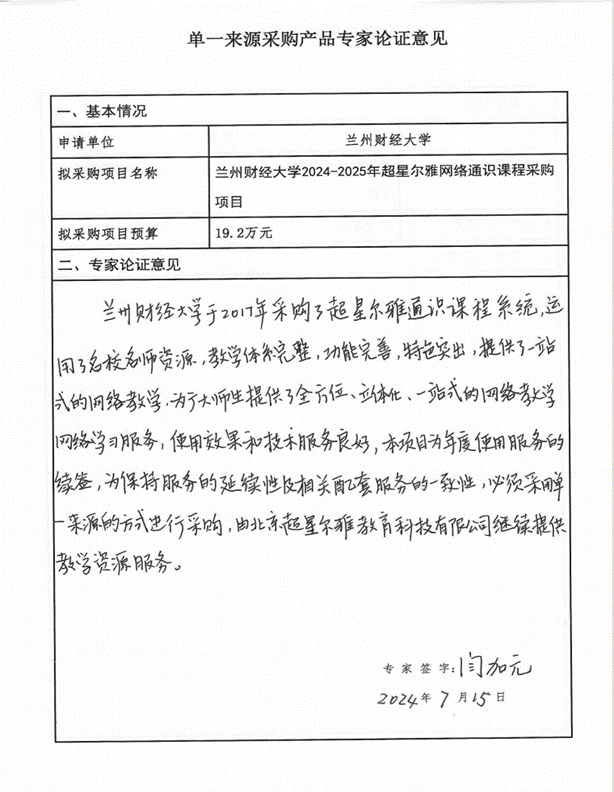 单一来源采购产品专家论证意见
一、基本情况
申请单位 兰州财经大学
拟采购项目名称 兰州财经大学2024-2025年超星尔雅网络通识课程采购
项目
拟采购项目预算 19.2万元
二、专家论证意见
兰州财经大学于2017年采购了超星尔雅通识课程系统,运
用了名校名师资源,教学体系完整,功能完善,特色突出,提供了一站
式的网络教学.为广大师生提供了全方位、立体化、一站式的网络教学
网络学习服务,使用效果和技术服务良好,本项目为年度使用服务的
续签,为保持服务的延续性及相关配套服务的一致性,必须采用单
一来源的方式进行采购,由北京超星尔雅教育科技有限公司继续提供
教学资源服务。
专家签字:闫加元
2024年7月15日